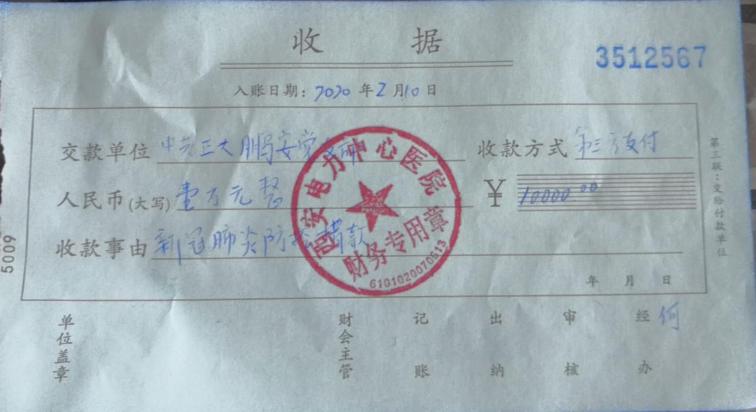 收 据
3512567
入账日期：2020 年 2 月 10 日
交款单位 中共正大鹏安党 收款方式 第三方支付
人民币(大写) 壹万元整 ¥ 10000.00
收款事由 新冠肺炎防控捐款
年 月 日
西安电力中心医院
财务专用章
6101020070513
第三联：交给付款单位
5009
单位盖章 财会主管 记账 出纳 审核 经办 何